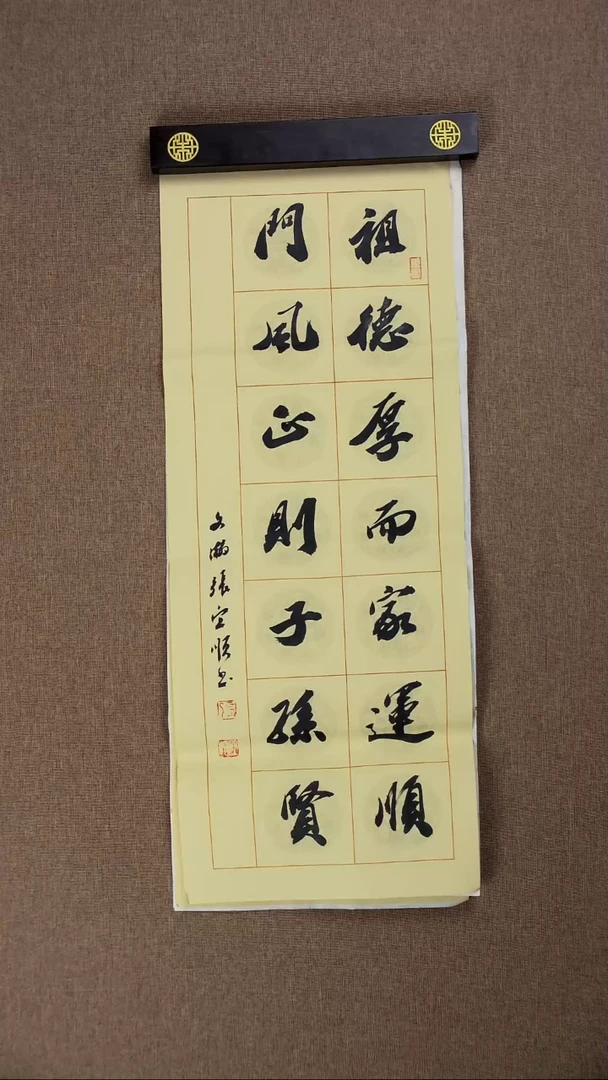 祖德厚而家運順
門風正則子孫賢
張宝順书